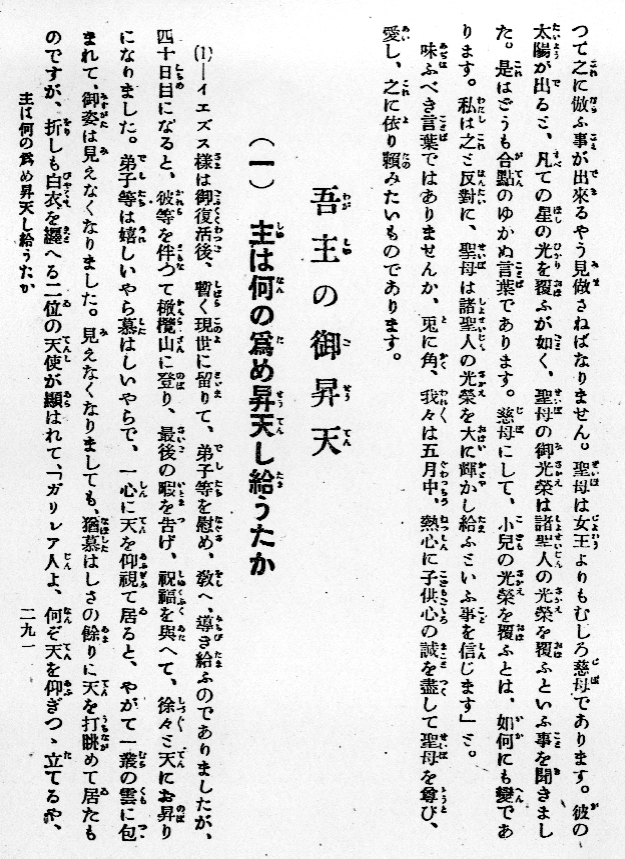 つて之に倣ふ事が出來るやう見做さねばなりません。聖母は女王よりもむしろ慈母であります。彼の
太陽が出るミ、凡ての星の光を覆ふが如く、聖母の御光榮は諸聖人の光榮を覆ふといふ事を聞きまし
た。是はごうも合點のゆかぬ言葉であります。慈母にして、小兒の光榮を覆ふとは、如何にも變であ
ります。私は之ミ反對に、聖母は諸聖人の光榮を大に輝かし給ふミいふ事を信じます」ミ。
味ふべき言葉ではありませんか、兎に角、我々は五月中、熱心に子供心の誠を盡して聖母を尊び、
愛し、之に依り賴みたいものであります。
吾主の御昇天
(一) 主は何の爲め昇天し給うたか
(1)―イエズス樣は御復活後、暫く現世に留りて、弟子等を慰め、敎へ、導き給ふのでありましたが、
四十日目になると、彼等を伴つて橄欖山に登り、最後の暇を告げ、祝福を與へて、徐々ミ天にお昇り
になりました。弟子等は嬉しいやら慕はしいやらで、一心に天を仰視て居ると、やがて一叢の雲に包
まれて、御姿は見えなくなりました。見えなくなりましても、猶慕はしさの餘りに天を打眺めて居たも
のですが、折しも白衣を纒へる二位の天使が顯はれて、「ガリレア人よ、何ぞ天を仰ぎつゝ立てるや、
主は何の爲め昇天し給うたか
二九一